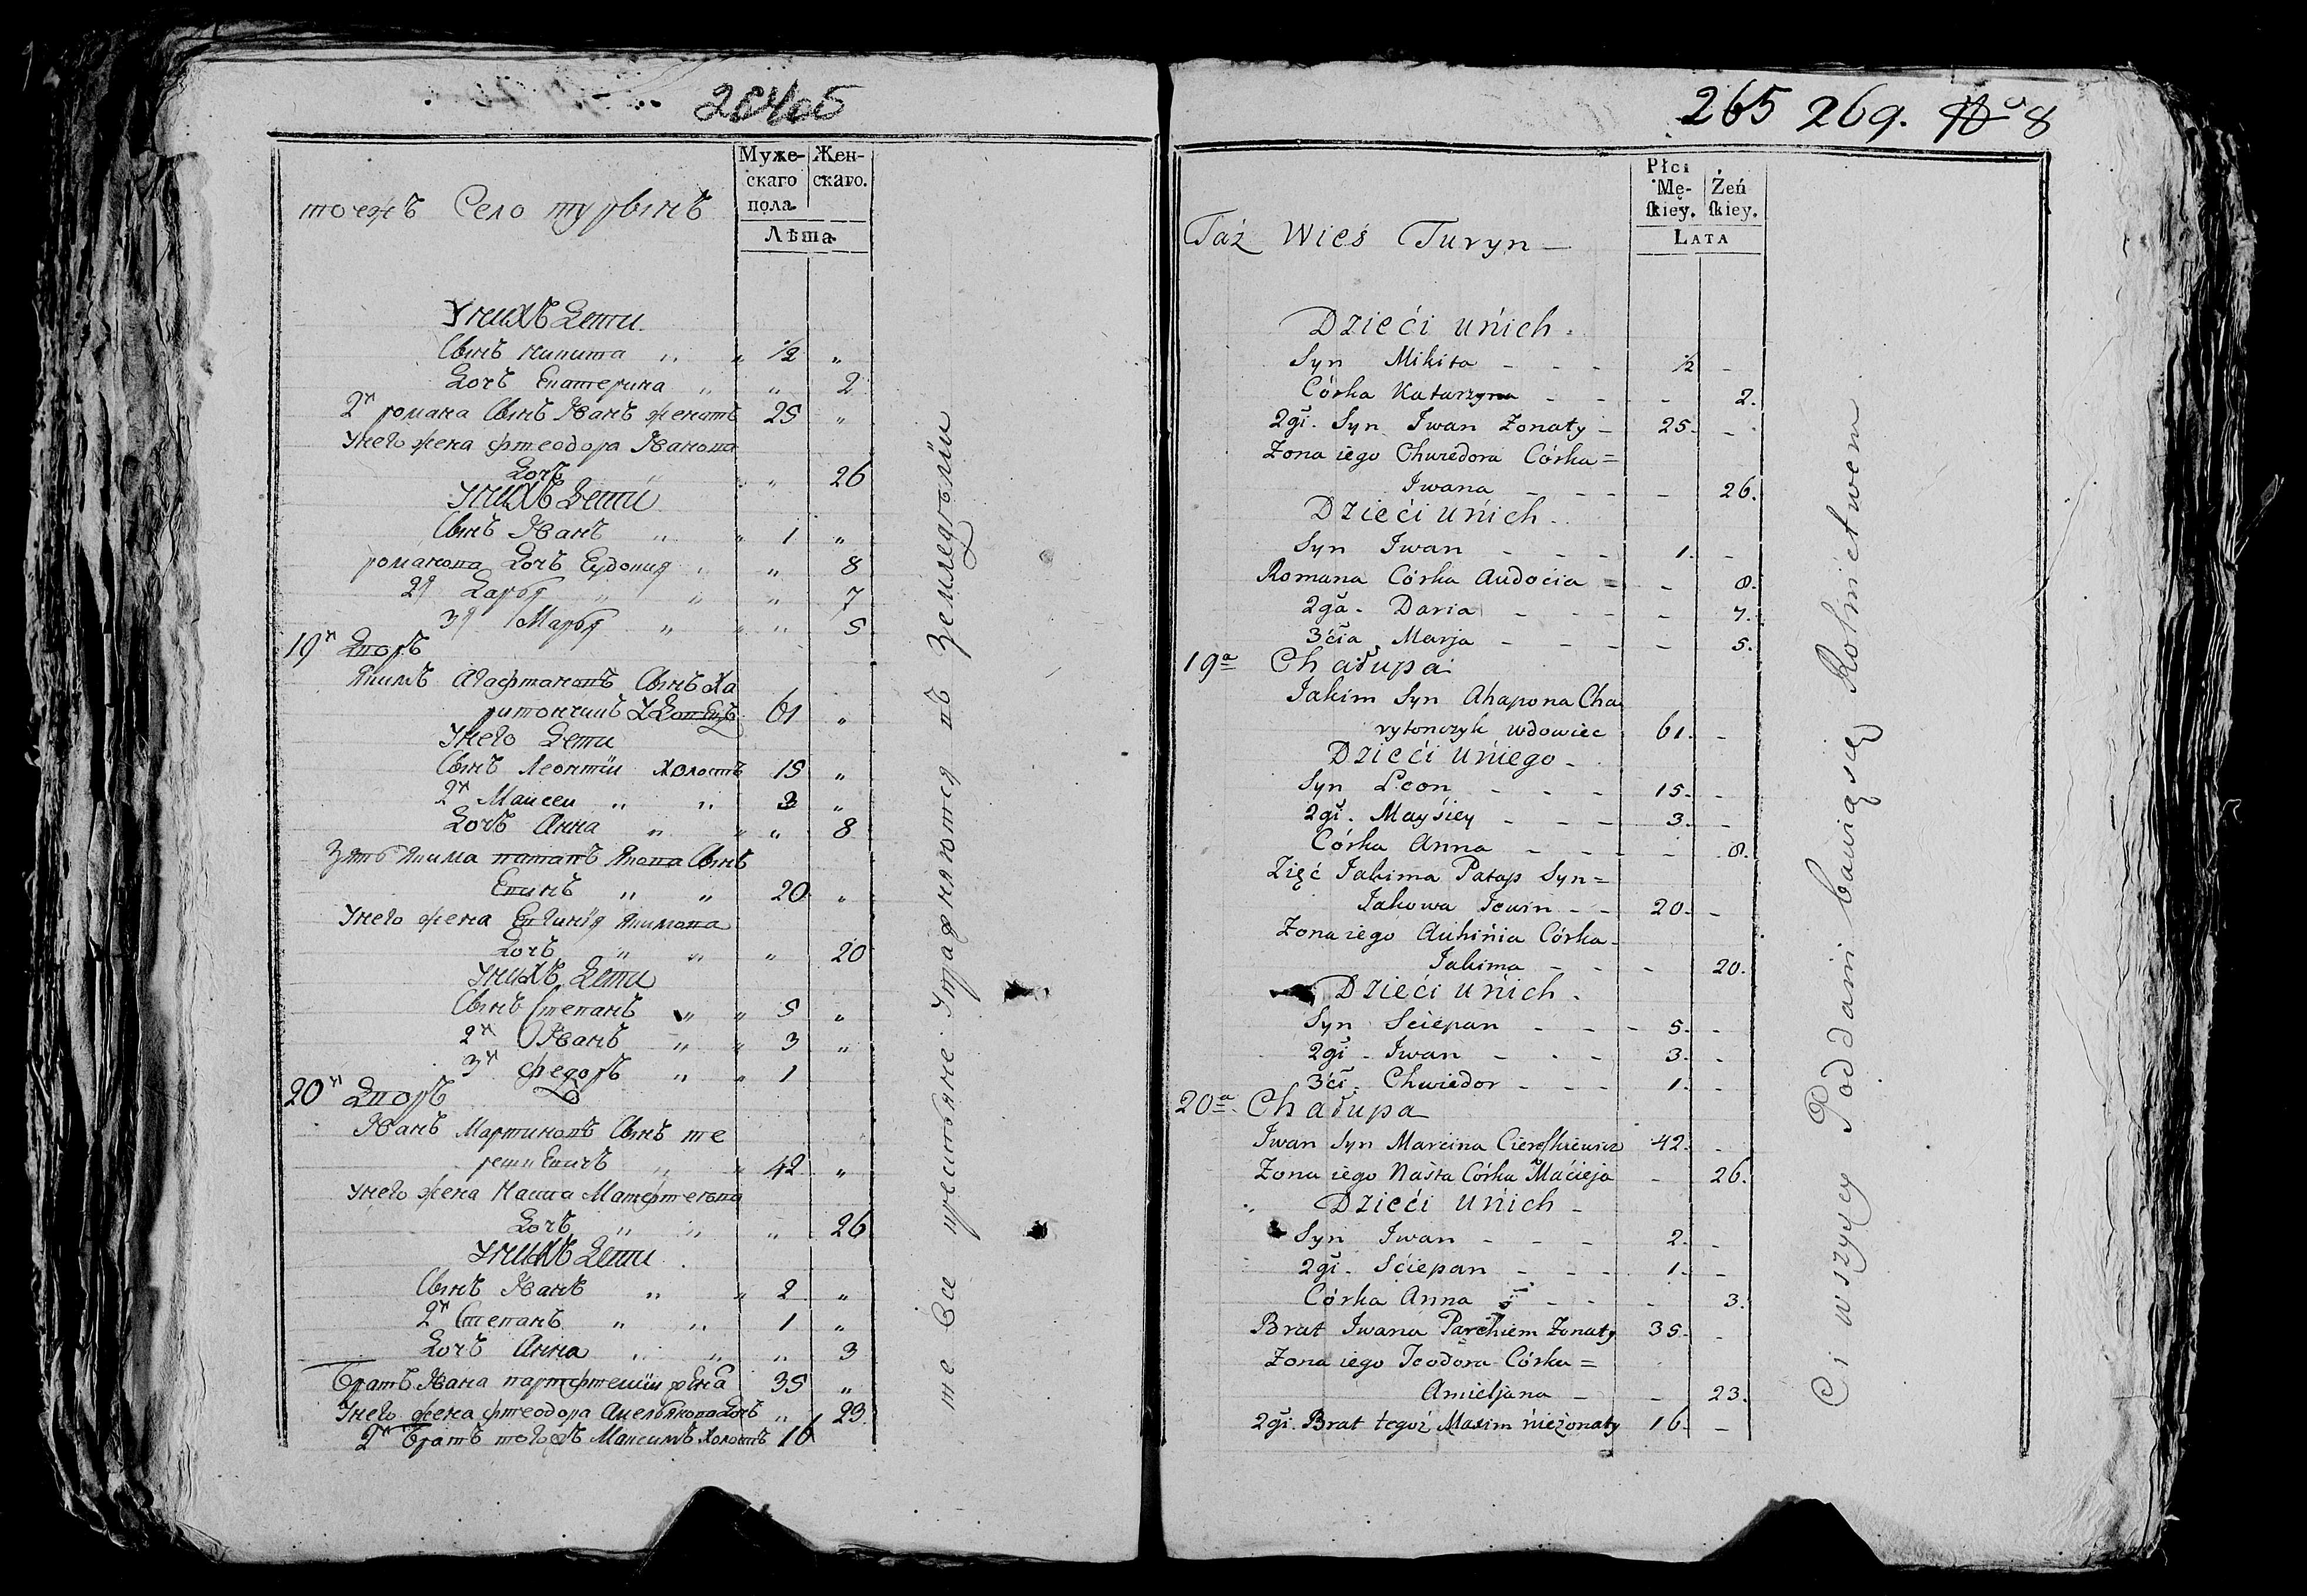 Муже-
скаго
пола
Жен-
скаго.
Лѣта
тоежъ Село турынъ
Унихъ Дети
Сынъ никита " " 1/2 "
Дочь Екатерина " " 2
2й романа Сынъ Иванъ женатъ 25 "
Унего жена фтеодора Иванова
Дочь " 26
Унихъ Дети
Сынъ Иванъ " " 1 "
романова Дочь Еудокия " " 8
2я Дарья " " " 7
3я Марья " " " 5
19й Дворъ
Якимъ Агафтановъ Сынъ Ха
ритончикъ Удовецъ 61 "
Унего Дети
Сынъ Леонтїи Холостъ 15 "
2й Маисеи " " 3 "
Дочь Анна " " " 8
Зять Якима патапъ Якова Сынъ
Евинъ " " 20 "
Унего жена Евгинїя Якимова
Дочь " " " 20
Унихъ Дети
Сынъ Степанъ " " 5 "
2й Иванъ " " 3 "
3й Федоръ " " 1
20й Дворъ
Иванъ Мартиновъ Сынъ те
решкевичъ " " 42 "
Унего жена Наста Матфтеева
Дочь " " " 26
Унихъ Дети
Сынъ Иванъ " " 2 "
2й Степанъ " " 1 "
Дочь Анна " " " 3
Братъ Ивана партфтемїи жена 35 "
Унего жена фтеодора Амельянова Дочь " 23
2й Братъ тогожъ Максимъ Холостъ 16
те все крестьяне упражняются въ Земледелїи
265 269. 8
Płci
Mę-
skiey.
Żeń
skiey.
LATA
Taż Wieś Turyn —
Dzieći unich.
Syn Mikita - - - 1/2 -
Córka Katarzyna - - - 2.
2gi. Syn Iwan Żonaty - 25. -
Żona iego Chwiedora Córka =
Iwana - - - - 26.
Dzieći unich.
Syn Iwan - - - 1. -
Romana Córka Audocia = - 8.
2ga. Daria - - - - 7.
3cia Marja - - - - 5.
19a Chałupa
Jakim Syn Ahapona Cha
rytonczyk wdowiec 61. -
Dzieći Uniego -
Syn Leon - - - 15. -
2gi. Mayśiey - - - 3. -
Córka Anna - - - - 8.
Zięć Jakima Patap Syn =
Jakowa Jewin - - 20. -
Żona iego Auhinia Córka -
Jakima - - - 20.
Dzieći Unich.
Syn Sciepan - - - 5. -
2gi - Iwan - - - 3. -
3ci. Chwiedor - - - 1. -
20a. Chałupa
Iwan Syn Marcina Ciereszkiewicz 42. -
Żona iego Nasta Córka Macieja - 26.
Dzieći Unich -
Syn Iwan - - - 2. -
2gi. Sciepan - - - 1. -
Córka Anna - - - 3.
Brat Iwana Parchiem Żonaty 35. -
Żona iego Teodora Córka =
Amieljana - - 23.
2gi. Brat tegoż Maxim nieżonaty 16. -
Ci wszyscy Poddani bawią się Rolnictwem